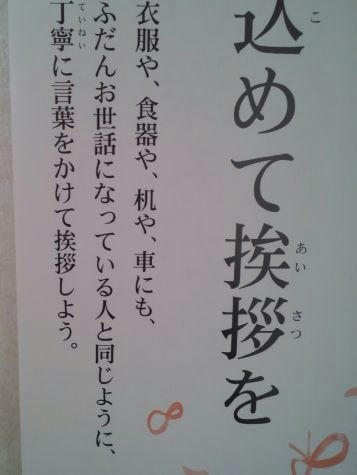 込めて挨拶を
衣服や、食器や、机や、車にも、
ふだんお世話になっている人と同じように、
丁寧に言葉をかけて挨拶しよう。